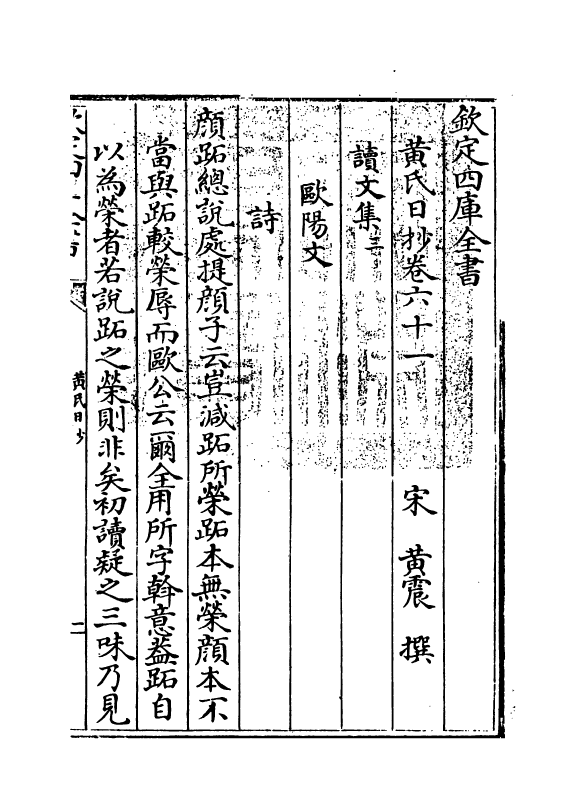 欽定四庫全書
黃氏日抄卷六十一
宋　黃震　撰
讀文集三
歐陽文
詩
顔跖總說處提顔子云豈減跖所榮跖本無榮顔本不
當與跖較榮辱而歐公云爾全用所字斡意葢跖自
以為榮者若說跖之榮則非矣初讀疑之三味乃見
黃氏日抄